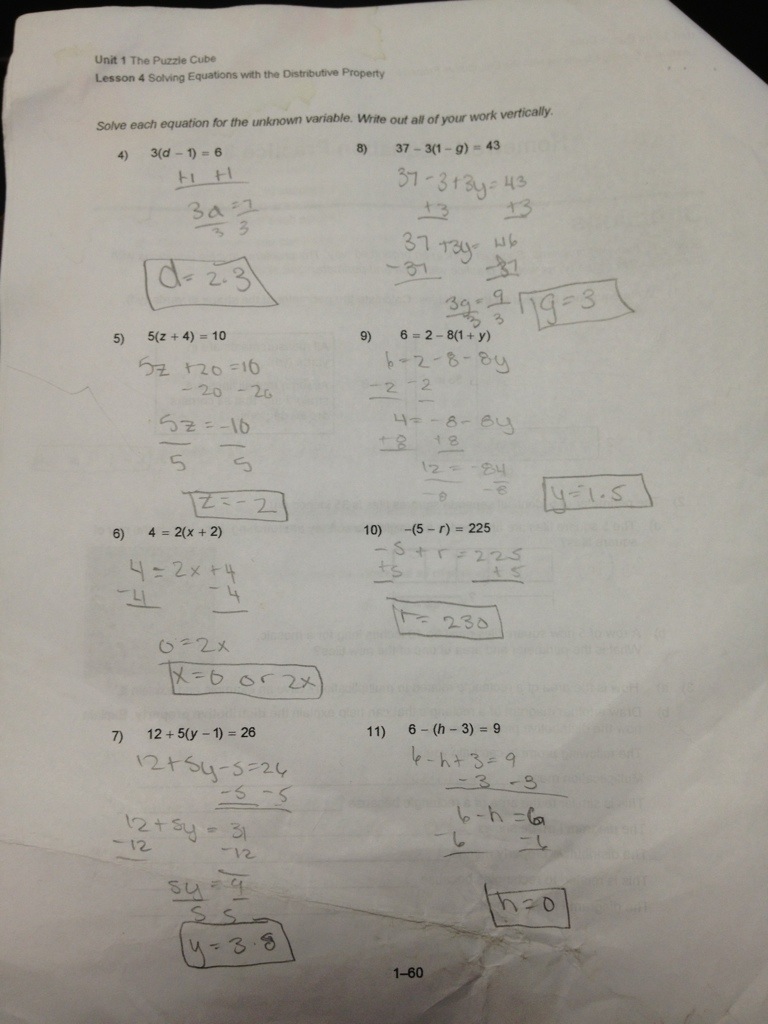 Unit 1 The Puzzle Cube
Lesson 4 Solving Equations with the Distributive Property
Solve each equation for the unknown variable. Write out all of your work vertically.
4) 3(d – 1) = 6
+1 +1
3d = 7
3 3
d = 2.3
5) 5(z + 4) = 10
5z +20 = 10
-20 -20
5z = -10
5 5
z = -2
6) 4 = 2(x + 2)
4 = 2x + 4
-4 -4
0 = 2x
x = 0 or 2x
7) 12 + 5(y – 1) = 26
12 + 5y - 5 = 26
-5 -5
12 + 5y = 31
-12 -12
5y =
5 5
y = 3.8
8) 37 – 3(1 – g) = 43
37 - 3 + 3g = 43
+3 +3
37 + 3g = 46
-37 -37
3g = 9
3 3
g = 3
9) 6 = 2 – 8(1 + y)
6 = 2 - 8 - 8y
-2 -2
4 = -8 - 8y
+8 +8
12 = -8y
-8 -8
y = -1.5
10) -(5 – r) = 225
-5 + r = 225
+5 +5
r = 230
11) 6 – (h – 3) = 9
6 - h + 3 = 9
-3 -3
6 - h = 6
-6 -6
h = 0
1–60